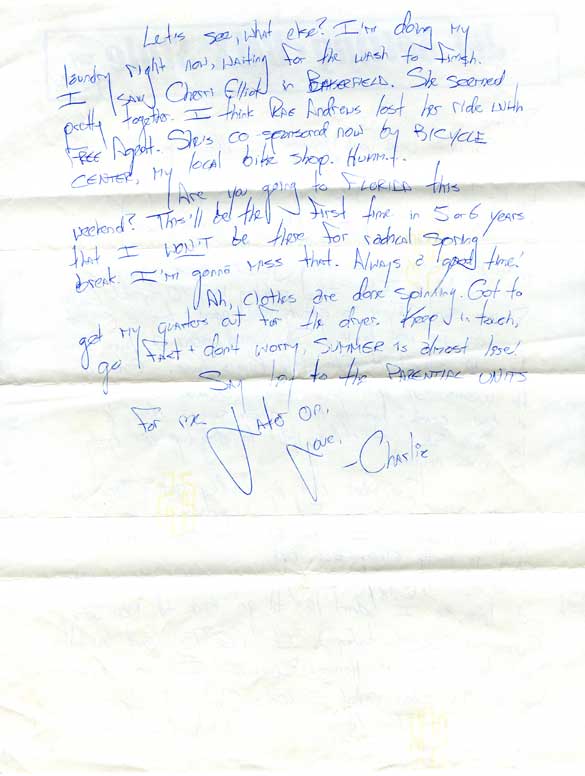 Let's see, what else? I'm doing my
laundry right now, waiting for the wash to finish.
I saw Cherri Elliott in BAKERSFIELD. She seemed
pretty together. I think Rae Andrews lost her ride with
FREE Agent. She's co-sponsored now by BICYCLE
CENTER, my local bike shop. Hummm.
Are you going to FLORIDA this
weekend? This'll be the first time in 5 or 6 years
that I WON'T be there for radical spring
break. I'm gonna miss that. Always a good time!
Ah, clothes are done spinning. Got to
get my quarters out for the dryer. Keep in touch,
go FAST + don't worry, SUMMER is almost here!
Say hey to the PARENTIAL UNITS
for me. Later on,
Love,
-Charlie